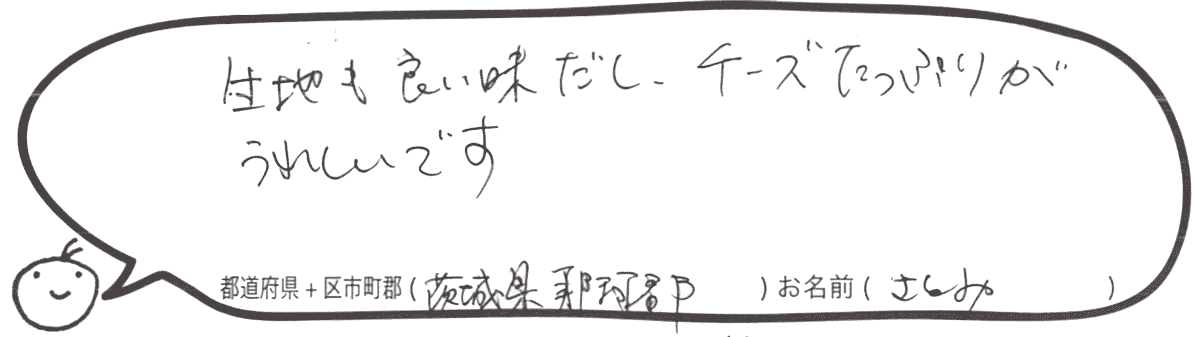 生地も良い味だし、チーズたっぷりが
うれしいです
都道府県+区市町郡(茨城県那珂郡)お名前(さとみ)